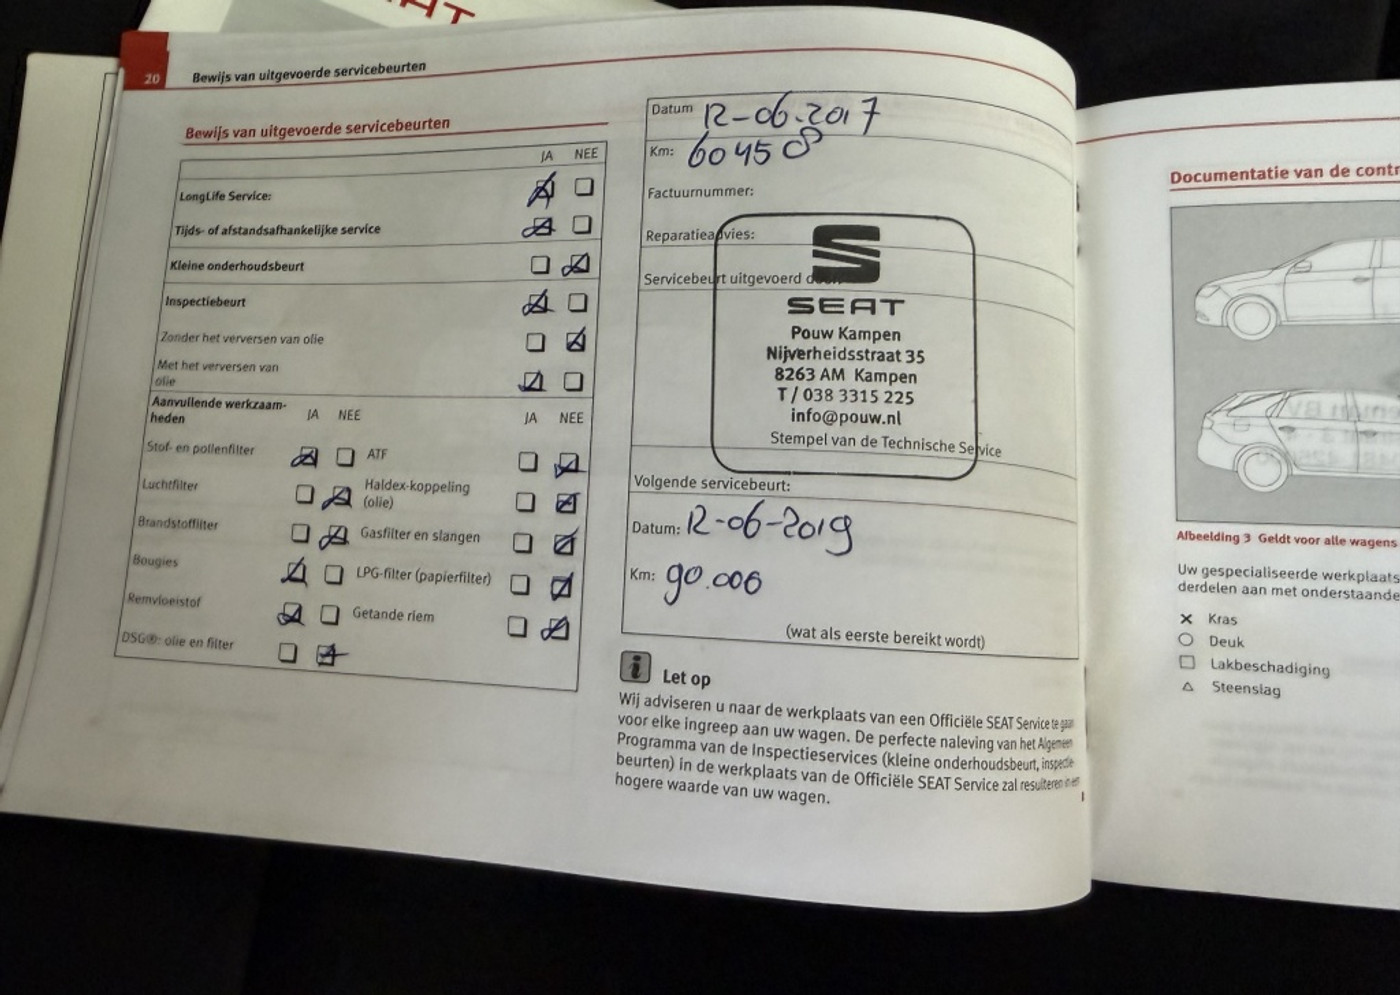 20 Bewijs van uitgevoerde servicebeurten
Bewijs van uitgevoerde servicebeurten
JA NEE
LongLife Service:
Tijds- of afstandsafhankelijke service
Kleine onderhoudsbeurt
Inspectiebeurt
Zonder het verversen van olie
Met het verversen van
olie
Aanvullende werkzaam-
heden JA NEE JA NEE
Stof- en pollenfilter ATF
Luchtfilter Haldex-koppeling
(olie)
Brandstoffilter Gasfilter en slangen
Bougies LPG-filter (papierfilter)
Remvloeistof Getande riem
DSG®: olie en filter
Datum 12-06-2017
Km: 60458
Factuurnummer:
Reparatieadvies:
Servicebeurt uitgevoerd door:
SEAT
Pouw Kampen
Nijverheidsstraat 35
8263 AM Kampen
T / 038 3315 225
info@pouw.nl
Stempel van de Technische Service
Volgende servicebeurt:
Datum: 12-06-2019
Km: 90.000
(wat als eerste bereikt wordt)
Let op
Wij adviseren u naar de werkplaats van een Officiële SEAT Service te gaan
voor elke ingreep aan uw wagen. De perfecte naleving van het Algemeen
Programma van de Inspectieservices (kleine onderhoudsbeurt, inspectie-
beurten) in de werkplaats van de Officiële SEAT Service zal resulteren in een
hogere waarde van uw wagen.
Documentatie van de contr
Afbeelding 3 Geldt voor alle wagens
Uw gespecialiseerde werkplaats
derdelen aan met onderstaande
Kras
Deuk
Lakbeschadiging
Steenslag